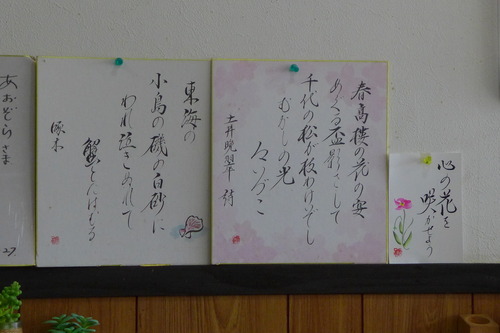 春高楼の花の宴
めぐる盃影さして
千代の松が枝わけいでし
むかしの光
今いづこ
土井晩翠 詩
東海の
小島の磯の白砂に
われ泣きぬれて
蟹とたはむる
啄木
心の花を
咲かせよう
あおぞらさま
27